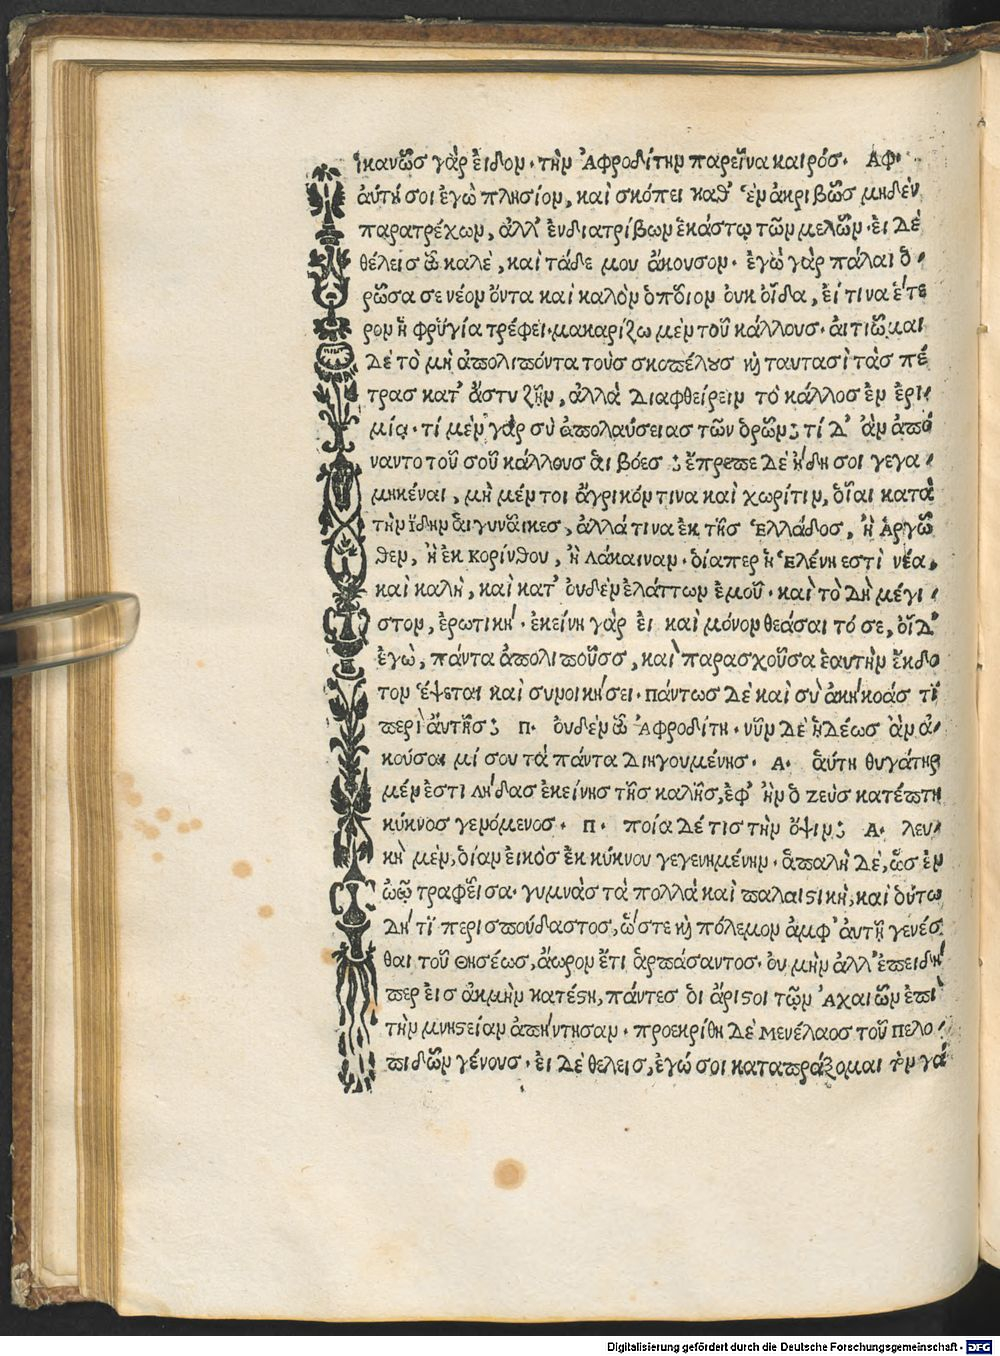 ἱκανῶς γὰρ εἶδον. τὴν Ἀφροδίτην παρεῖναι καιρός. ΑΦ.
ἁύτη σοι ἐγὼ πλησίον, καὶ σκόπει καθ' ἓν ἀκριβῶς μηδὲν
παρατρέχων, ἀλλ' ἐνδιατρίβων ἑκάστῳ τῶν μελῶν. ἐι δὲ
θέλεις ὦ καλὲ, καὶ τάδε μου ἄκουσον. ἐγὼ γὰρ πάλαι ὁ-
ρῶσα σε νέον ὄντα καὶ καλὸν ὁπδιον ουκ οἶδα, εἴ τινα ἕτε
ρον ἡ φρῦγία τρέφει. μακαρίζω μὲν τοῦ κάλλους. ἀιτιῶμαι
δὲ τὸ μὴ ἀπολιπόντα τοὺς σκοπέλους καὶ ταυτασὶ τὰς πέ
τρας κατ' ἄστυ ζῆν, ἀλλὰ διαφθείρειν τὸ κάλλος ἐν ἐρη-
μίᾳ. τί μὲν γὰρ σὺ ἀπολαύσειας τῶν ὁρῶν; τί δ' ἂν ἀπό
ναντο τοῦ σοῦ κάλλους ἁι βόες; ἔπρεπε δὲ ἤδη σοι γεγα-
μηκέναι, μὴ μέντοι ἄγρικόν τινα καὶ χωρίτιν, ὁῖαι κατὰ
τὴν ἴδην ἁι γυνᾶικες, ἀλλά τινα ἐκ τῆς Ἑλλάδος, ἢ Ἀργῶ
θεν, ἢ ἐκ κορίνθου, ἢ λάκαιναν. ὁίαπερ ἡ Ἑλένη εστὶ νέα,
καὶ καλὴ, καὶ κατ' ὀυδὲν ἐλάττων ἐμοῦ. καὶ τὸ δὴ μέγι-
στον, ἐρωτική. ἐκείνη γὰρ ἐι καὶ μόνον θεάσαι τό σε, οἶδ'
ἐγὼ, πάντα ἀπολιποῦσς, καὶ παρασχοῦσα ἑαυτὴν ἔκδο
τον ἕψεται καὶ συνοικήσει. πάντως δὲ καὶ σὺ ἀκήκοάς τῖ
περὶ ἄυτῆς; Π. ὀυδὲν ὦ Ἀφροδίτη. νῦν δὲ ἡδέως ἂν ἀ-
κούσαι μί σου τὰ πάντα διηγουμένης. Α. ἁύτη θυγάτηρ
μέν ἐστι λήδας ἐκείνης τῆς καλῆς, ἐφ' ἣν ὁ ζεὺς κατέπτη
κύκνος γενόμενος. Π. ποία δέ τις τὴν ὄψιν; Α. λευ-
κὴ μὲν, ὁίαν εἰκὸς ἐκ κύκνου γεγενημένην. ἁπαλὴ δὲ, ὡς ἐν
ὠῷ τραφεῖσα. γυμνὰς τὰ πολλὰ καὶ παλαιστικὴ, καὶ ὁύτω
δή τῖ περισπούδαστος, ὥστε καὶ πόλεμον ἀμφ' ἀυτῆ γενέσ
θαι τοῦ Θησέως, ἄωρον ἔτι ἁρπάσαντος. ὀυ μὴν ἀλλ' ἐπειδή
περ ἐις ἀκμὴν κατέστη, πάντες ὁι ἄριστοι τῶν Ἀχαιῶν ἐπὶ
τὴν μνηστείαν ἀπήντησαν. προεκρίθη δὲ Μενέλαος τοῦ Πελο-
πιδῶν γένους. ἐι δὲ θελεις, ἐγώ σοι καταπράξομαι τὸν γά
Digitalisierung gefördert durch die Deutsche Forschungsgemeinschaft - DFG